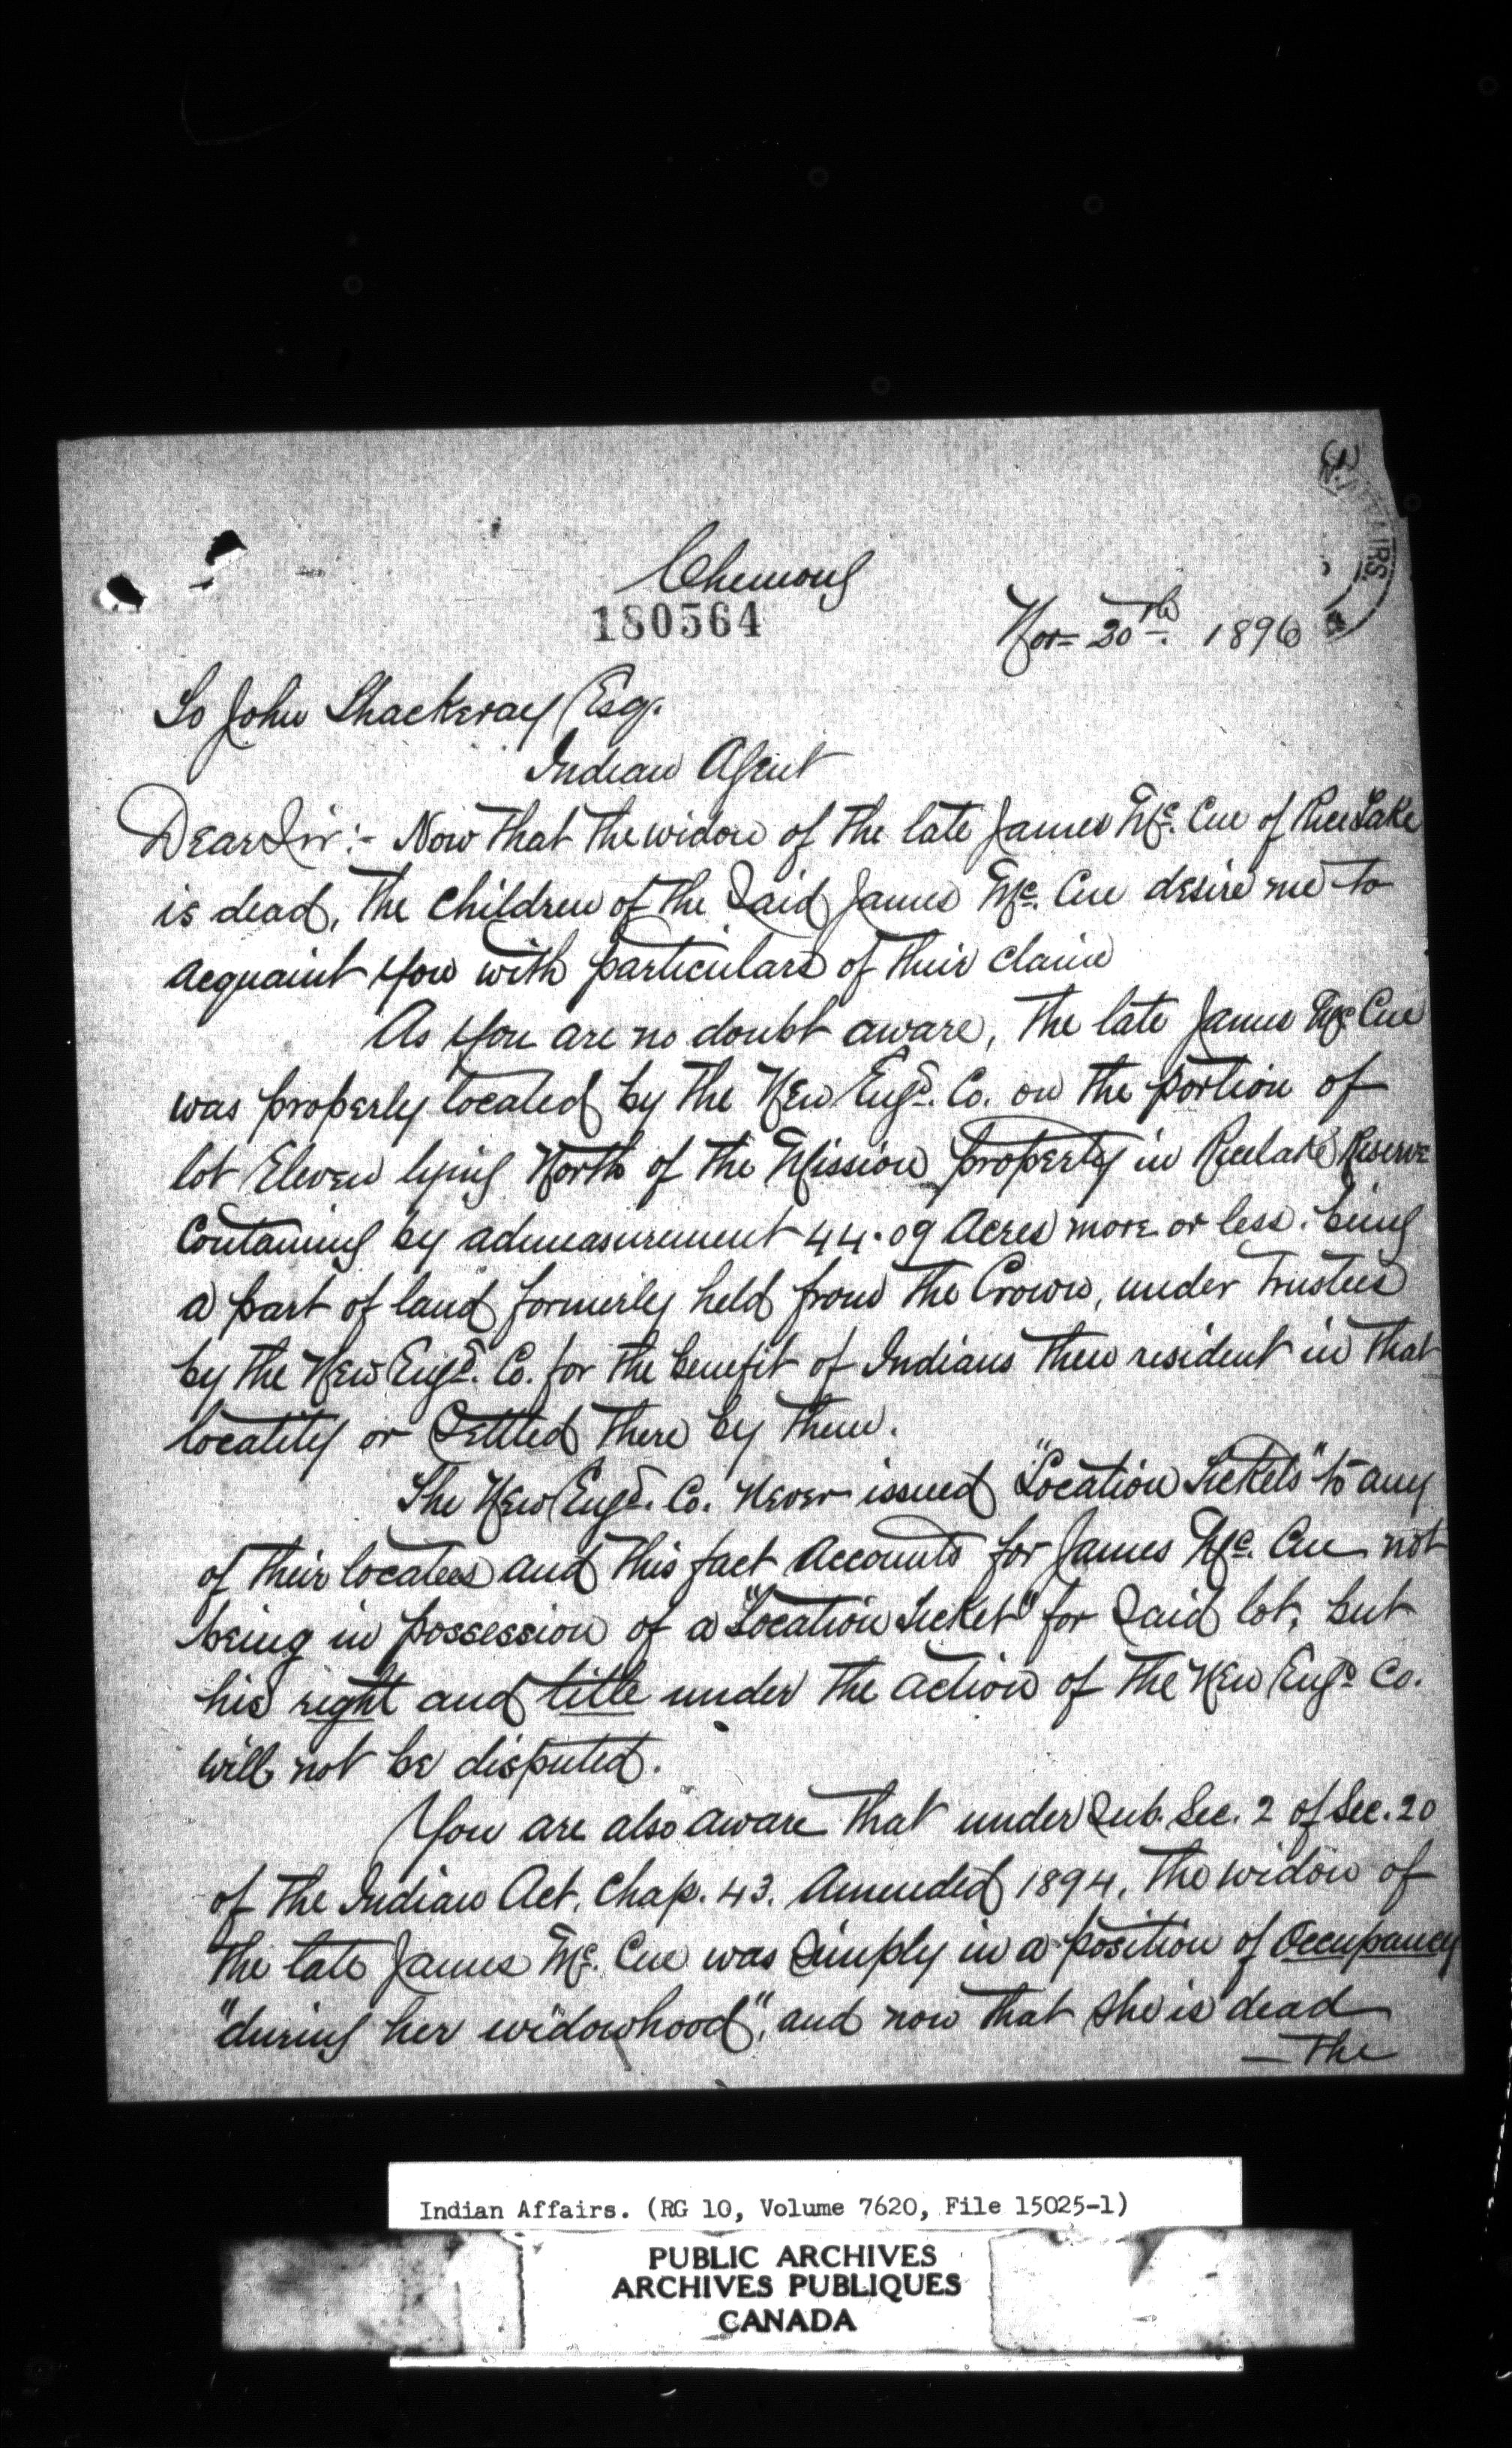 (1)
N. AFFAIRS.
Chemong
180564
Nov= 30th. 1896
To John Thackeray Esq.
Indian Agent
Dear Sir:- Now that the widow of the late James Mc. Cue of Rice Lake
is dead, the children of the Said James Mc. Cue desire me to
acquaint you with particulars of their claim
As you are no doubt aware, the late James Mc Cue
was properly located by the New Engd. Co. on the portion of
lot Eleven lying North of the Mission property in Ricelake Reserve
Containing by admeasurement 44.09 Acres more or less. being
a part of land formerly held from the Crown, under Trustees
by the New Engd. Co. for the benefit of Indians then resident in that
locality or Settled there by them.
The New Engd. Co. never issued "Location Tickets" to any
of their locatees and this fact accounts for James Mc. Cue not
being in possession of a "Location Ticket" for Said lot, but
his right and title under the action of the New Engd Co.
will not be disputed.
You are also aware that under Sub. Sec. 2 of Sec. 20
of the Indian Act, Chap. 43. Amended 1894, the widow of
the late James Mc. Cue was Simply in a position of Occupancy
"during her widowhood", and now that she is dead
—The
Indian Affairs. (RG 10, Volume 7620, File 15025-1)
PUBLIC ARCHIVES
ARCHIVES PUBLIQUES
CANADA